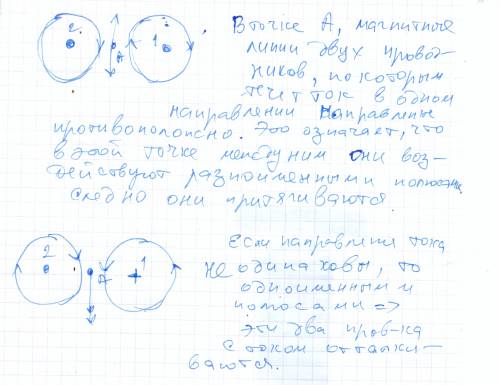 В точке А, магнитные
линии двух провод-
ников, по которым
течет ток в одном
направлении направлены
противоположно. Это означает, что
в этой точке между ним они воз-
действуют разноименными полюсами,
следно они притягиваются.
2 1
А
Если направления тока
не одинаковы, то
одноименными
полюсами =>
эти два пров-ка
с током отталки-
ваются.
2 1
А